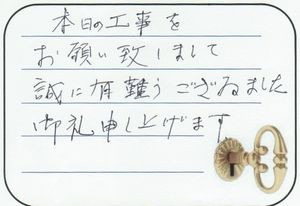 本日の工事を
お願い致しまして
誠に有難うございました
御礼申し上げます